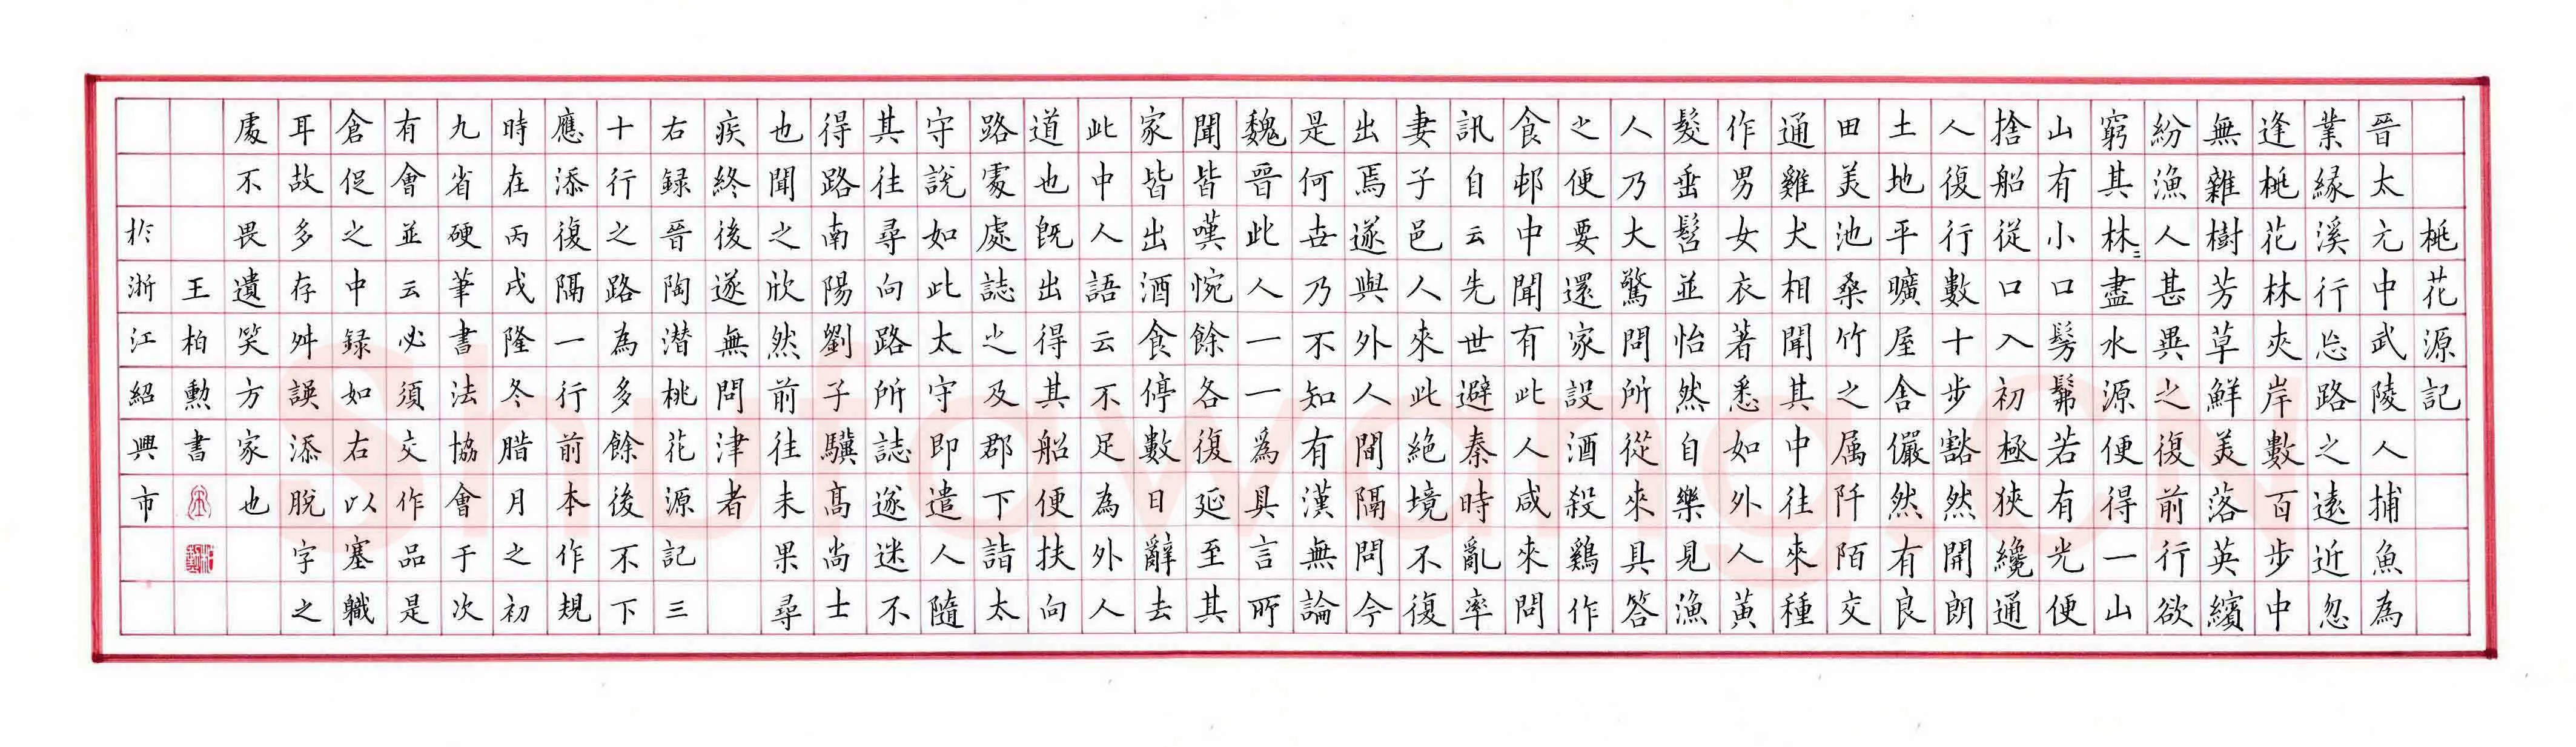 桃花源記
晉太元中武陵人捕魚為
業緣溪行忘路之遠近忽
逢桃花林夾岸數百步中
無雜樹芳草鮮美落英繽
紛漁人甚異之復前行欲
窮其林〻盡水源便得一山
山有小口髣髴若有光便
捨船從口入初極狹纔通
人復行數十步豁然開朗
土地平曠屋舍儼然有良
田美池桑竹之属阡陌交
通雞犬相聞其中往來種
作男女衣著悉如外人黃
髮垂髫並怡然自樂見漁
人乃大驚問所從來具答
之便要還家設酒殺鷄作
食邨中聞有此人咸來問
訊自云先世避秦時亂率
妻子邑人來此絕境不復
出焉遂與外人間隔問今
是何世乃不知有漢無論
魏晉此人一一爲具言所
聞皆嘆惋餘各復延至其
家皆出酒食停數日辭去
此中人語云不足為外人
道也既出得其船便扶向
路處處誌之及郡下詣太
守說如此太守即遣人隨
其往尋向路所誌遂迷不
得路南陽劉子驥高尚士
也聞之欣然前往未果尋
疾終後遂無問津者
右録晉陶潜桃花源記三
十行之路為多餘後不下
應添復隔一行前本作規
時在丙戌隆冬腊月之初
九省硬筆書法協會于次
有會並云必須交作品是
倉促之中録如右以塞職
耳故多存舛誤添脫字之
處不畏遺笑方家也
王柏勳書
於浙江紹興市
Shufawang.CN